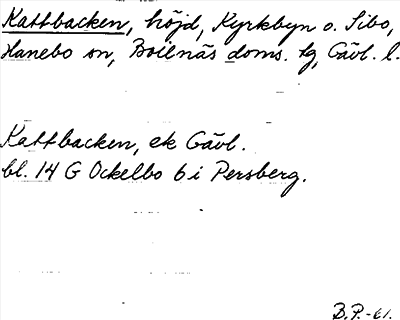 Kattbacken, höjd, Kyrkbyn o. Sibo,
Hanebo sn, Bollnäs doms. tg, Gävl. l.
Kattbacken, ek Gävl.
bl. 14 G Ockelbo 6 i Persberg.
B.P.-61.